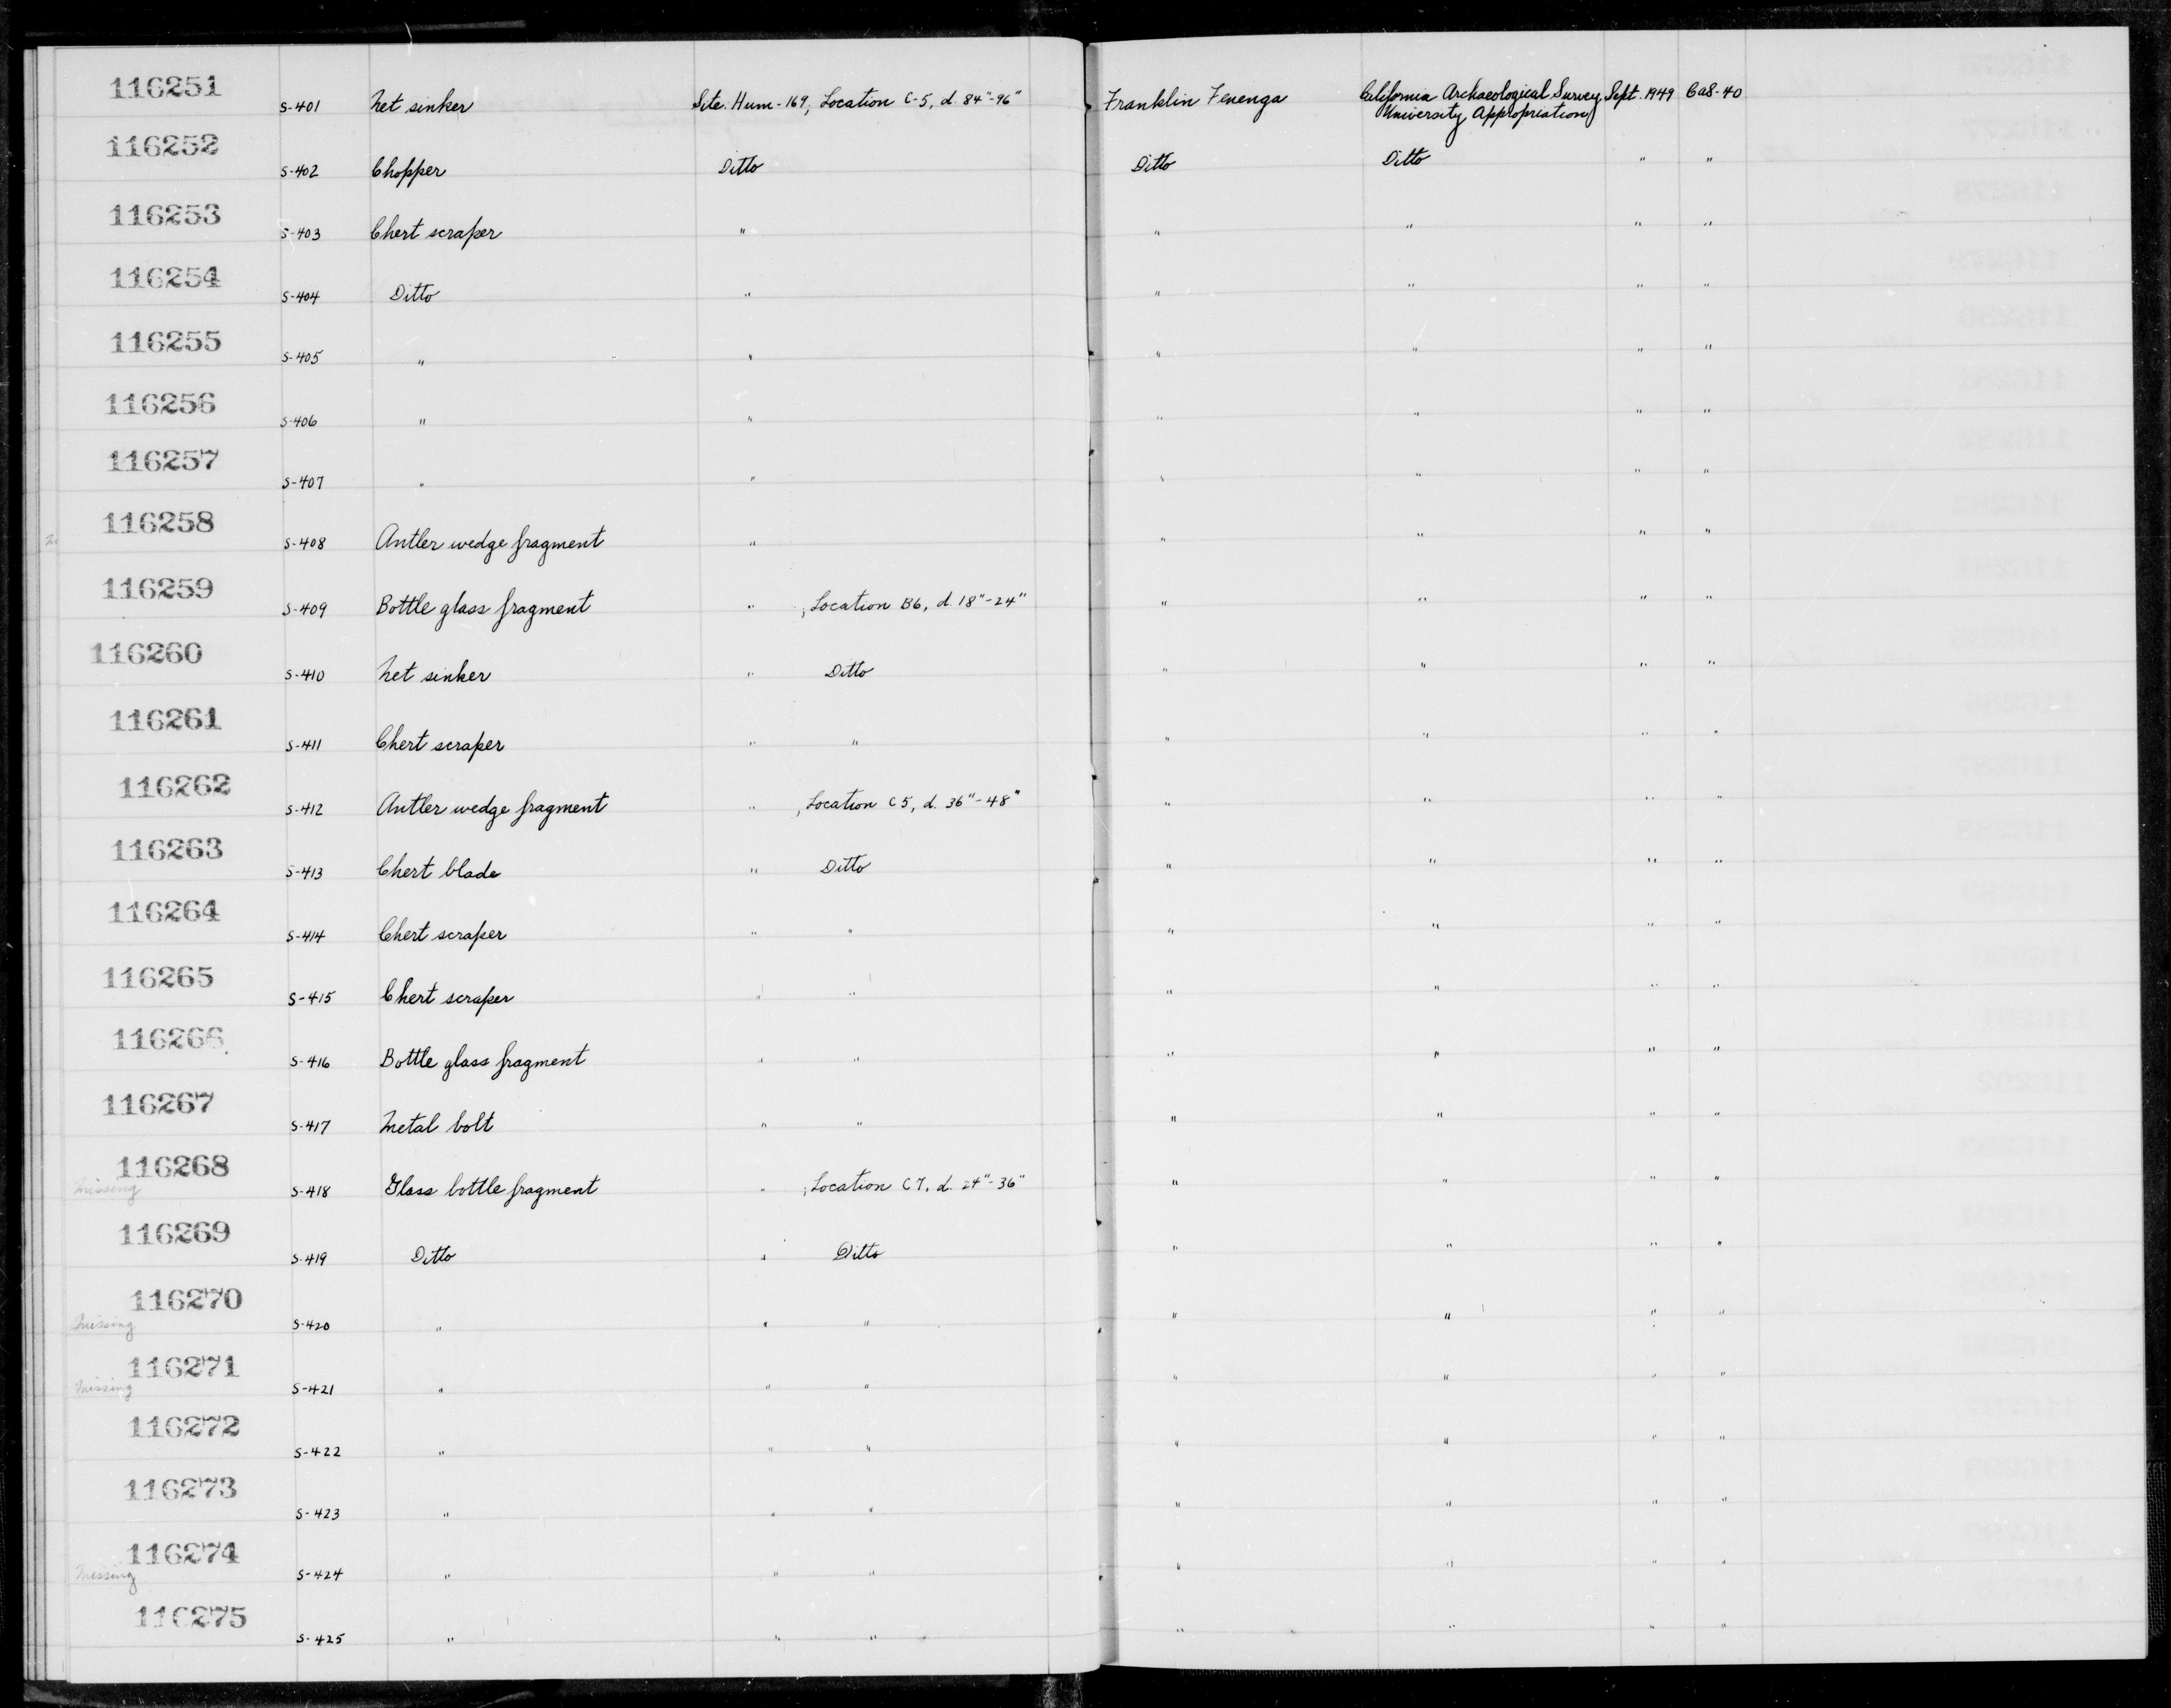 116251
S-401 Net sinker Site. Hum-169, Location C-5, d. 84"-96" Franklin Fenenga California Archaeological Survey Sept. 1949 CaS-40
University Appropriation
116252
S-402 Chopper Ditto Ditto Ditto " "
116253
S-403 Chert scraper " " " " "
116254
S-404 Ditto " " " " "
116255
S-405 " " " " " "
116256
S-406 " " " " " "
116257
S-407 " " " " " "
116258
S-408 Antler wedge fragment " " " " "
116259
S-409 Bottle glass fragment " ; Location B6, d. 18"-24" " " " "
116260
S-410 Net sinker " Ditto " " " "
116261
S-411 Chert scraper " " " " " "
116262
S-412 Antler wedge fragment " , Location C5, d. 36"-48" " " " "
116263
S-413 Chert blade " Ditto " " " "
116264
S-414 Chert scraper " " " " " "
116265
S-415 Chert scraper " " " " " "
116266
S-416 Bottle glass fragment " " " " " "
116267
S-417 Metal bolt " " " " " "
116268
Missing S-418 Glass bottle fragment " ; Location C7, d. 24"-36" " " " "
116269
S-419 Ditto " Ditto " " " "
116270
Missing S-420 " " " " " " "
116271
Missing S-421 " " " " " " "
116272
S-422 " " " " " " "
116273
S-423 " " " " " " "
116274
Missing S-424 " " " " " " "
116275
S-425 " " " " " " "